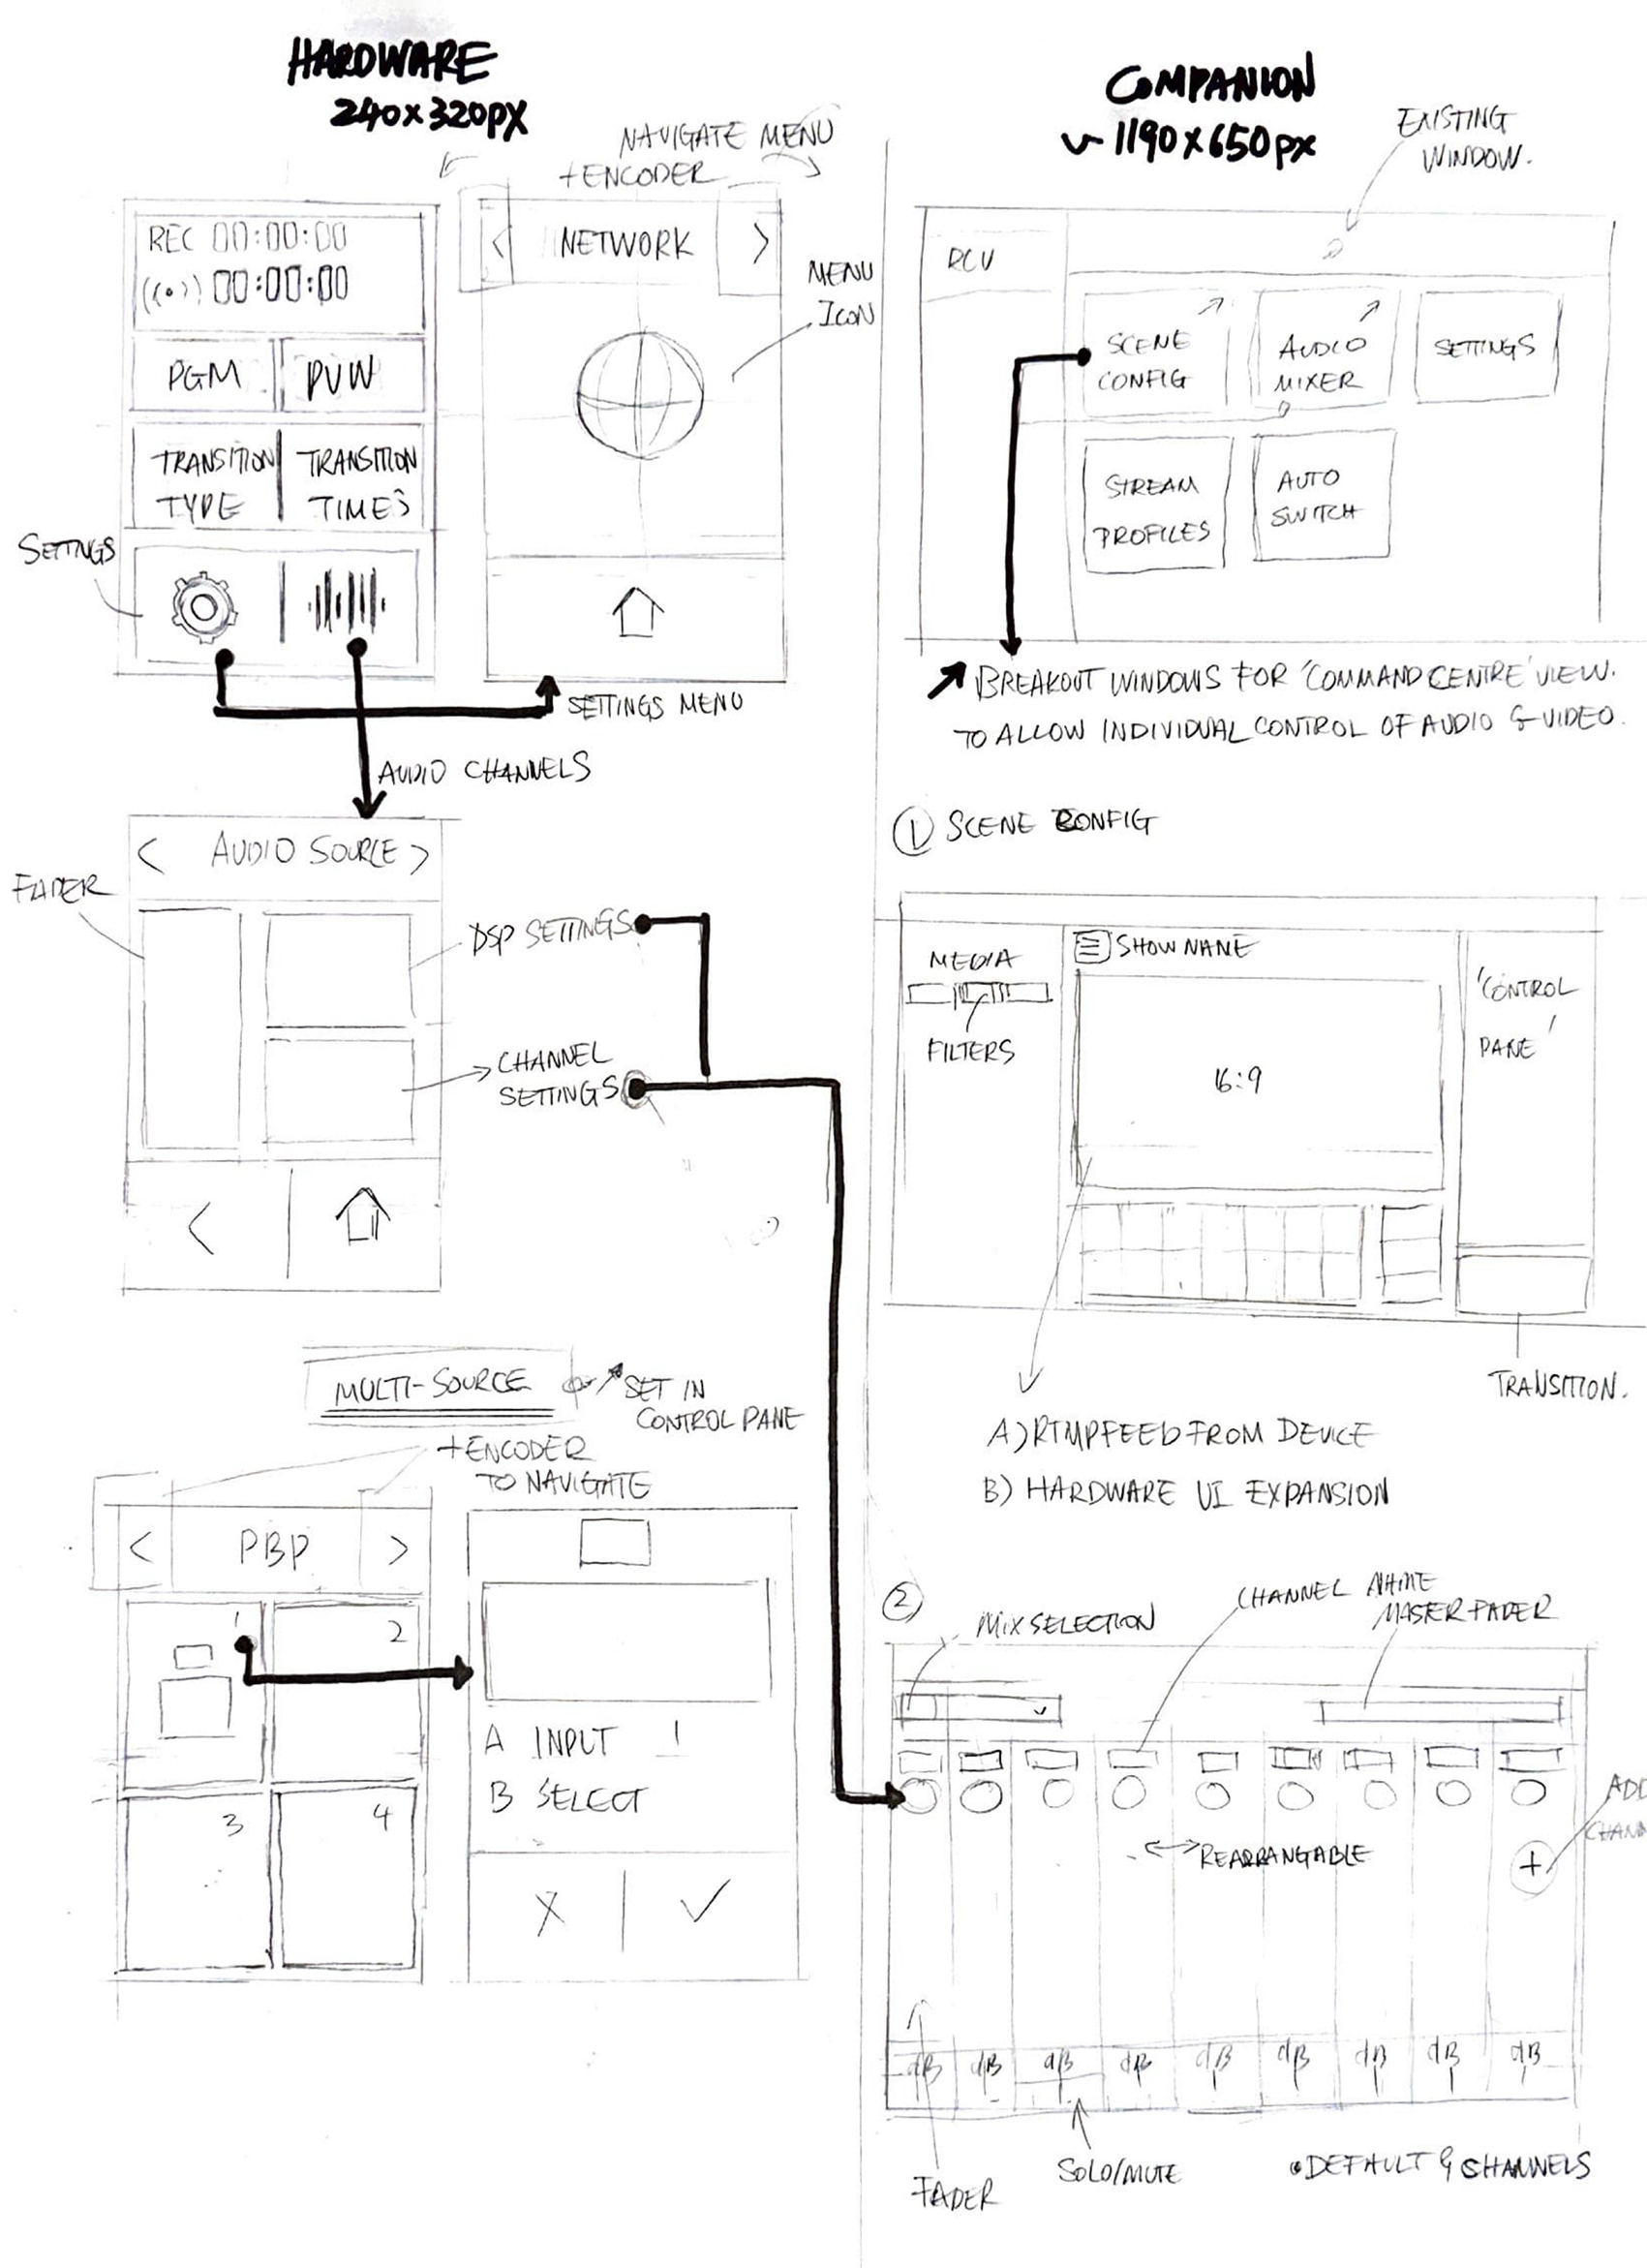 HARDWARE
240x320PX
NAVIGATE MENU
+ENCODER
REC 00:00:00
((•)) 00:00:00
PGM
PVW
TRANSITION
TYPE
TRANSITION
TIMES
SETTNGS
< NETWORK >
MENU
ICON
SETTINGS MENU
AUDIO CHANNELS
< AUDIO SOURCE >
FADER
DSP SETTINGS
CHANNEL
SETTINGS
<
MULTI-SOURCE
SET IN
CONTROL PANE
+ENCODER
TO NAVIGATE
< PBP >
1
2
3
4
A INPUT 1
B SELECT
X ✓
COMPANION
~1190x650px
EXISTING
WINDOW.
RCV
SCENE
CONFIG
AUDIO
MIXER
SETTINGS
STREAM
PROFILES
AUTO
SWITCH
BREAKOUT WINDOWS FOR 'COMMAND CENTRE' VIEW.
TO ALLOW INDIVIDUAL CONTROL OF AUDIO & VIDEO.
① SCENE CONFIG
MEDIA
FILTERS
SHOW NAME
16:9
'CONTROL
PANE'
TRANSITION.
A) RTMP FEED FROM DEVICE
B) HARDWARE UI EXPANSION
②
MIX SELECTION
CHANNEL NAME
MASTER FADER
REARRANGABLE
ADD
CHANN
+
dB dB dB dB dB dB dB dB dB
FADER
SOLO/MUTE
•DEFAULT 9 CHANNELS